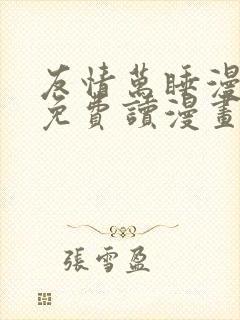 友情萬睡漫
免費讀漫畫
張雪盈